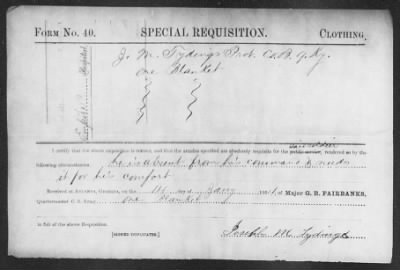 FORM No. 40. SPECIAL REQUISITION. CLOTHING.
J. M. Tydings Privt. Co. B. 9 Ky.
One Blanket
Hospital
I certify that the above requisition is correct, and that the articles specified are absolutely requisite for the public service, rendered so by the
following circumstances: he is absent from his command & needs
it for his comfort
RECEIVED at ATLANTA, GEORGIA, on the 14 Jany 1864, of Major G. R. FAIRBANKS,
Quartermaster C. S. Army, one Blanket
in full of the above Requisition.
[SIGNED DUPLICATES.]
Joseph M. Tydings